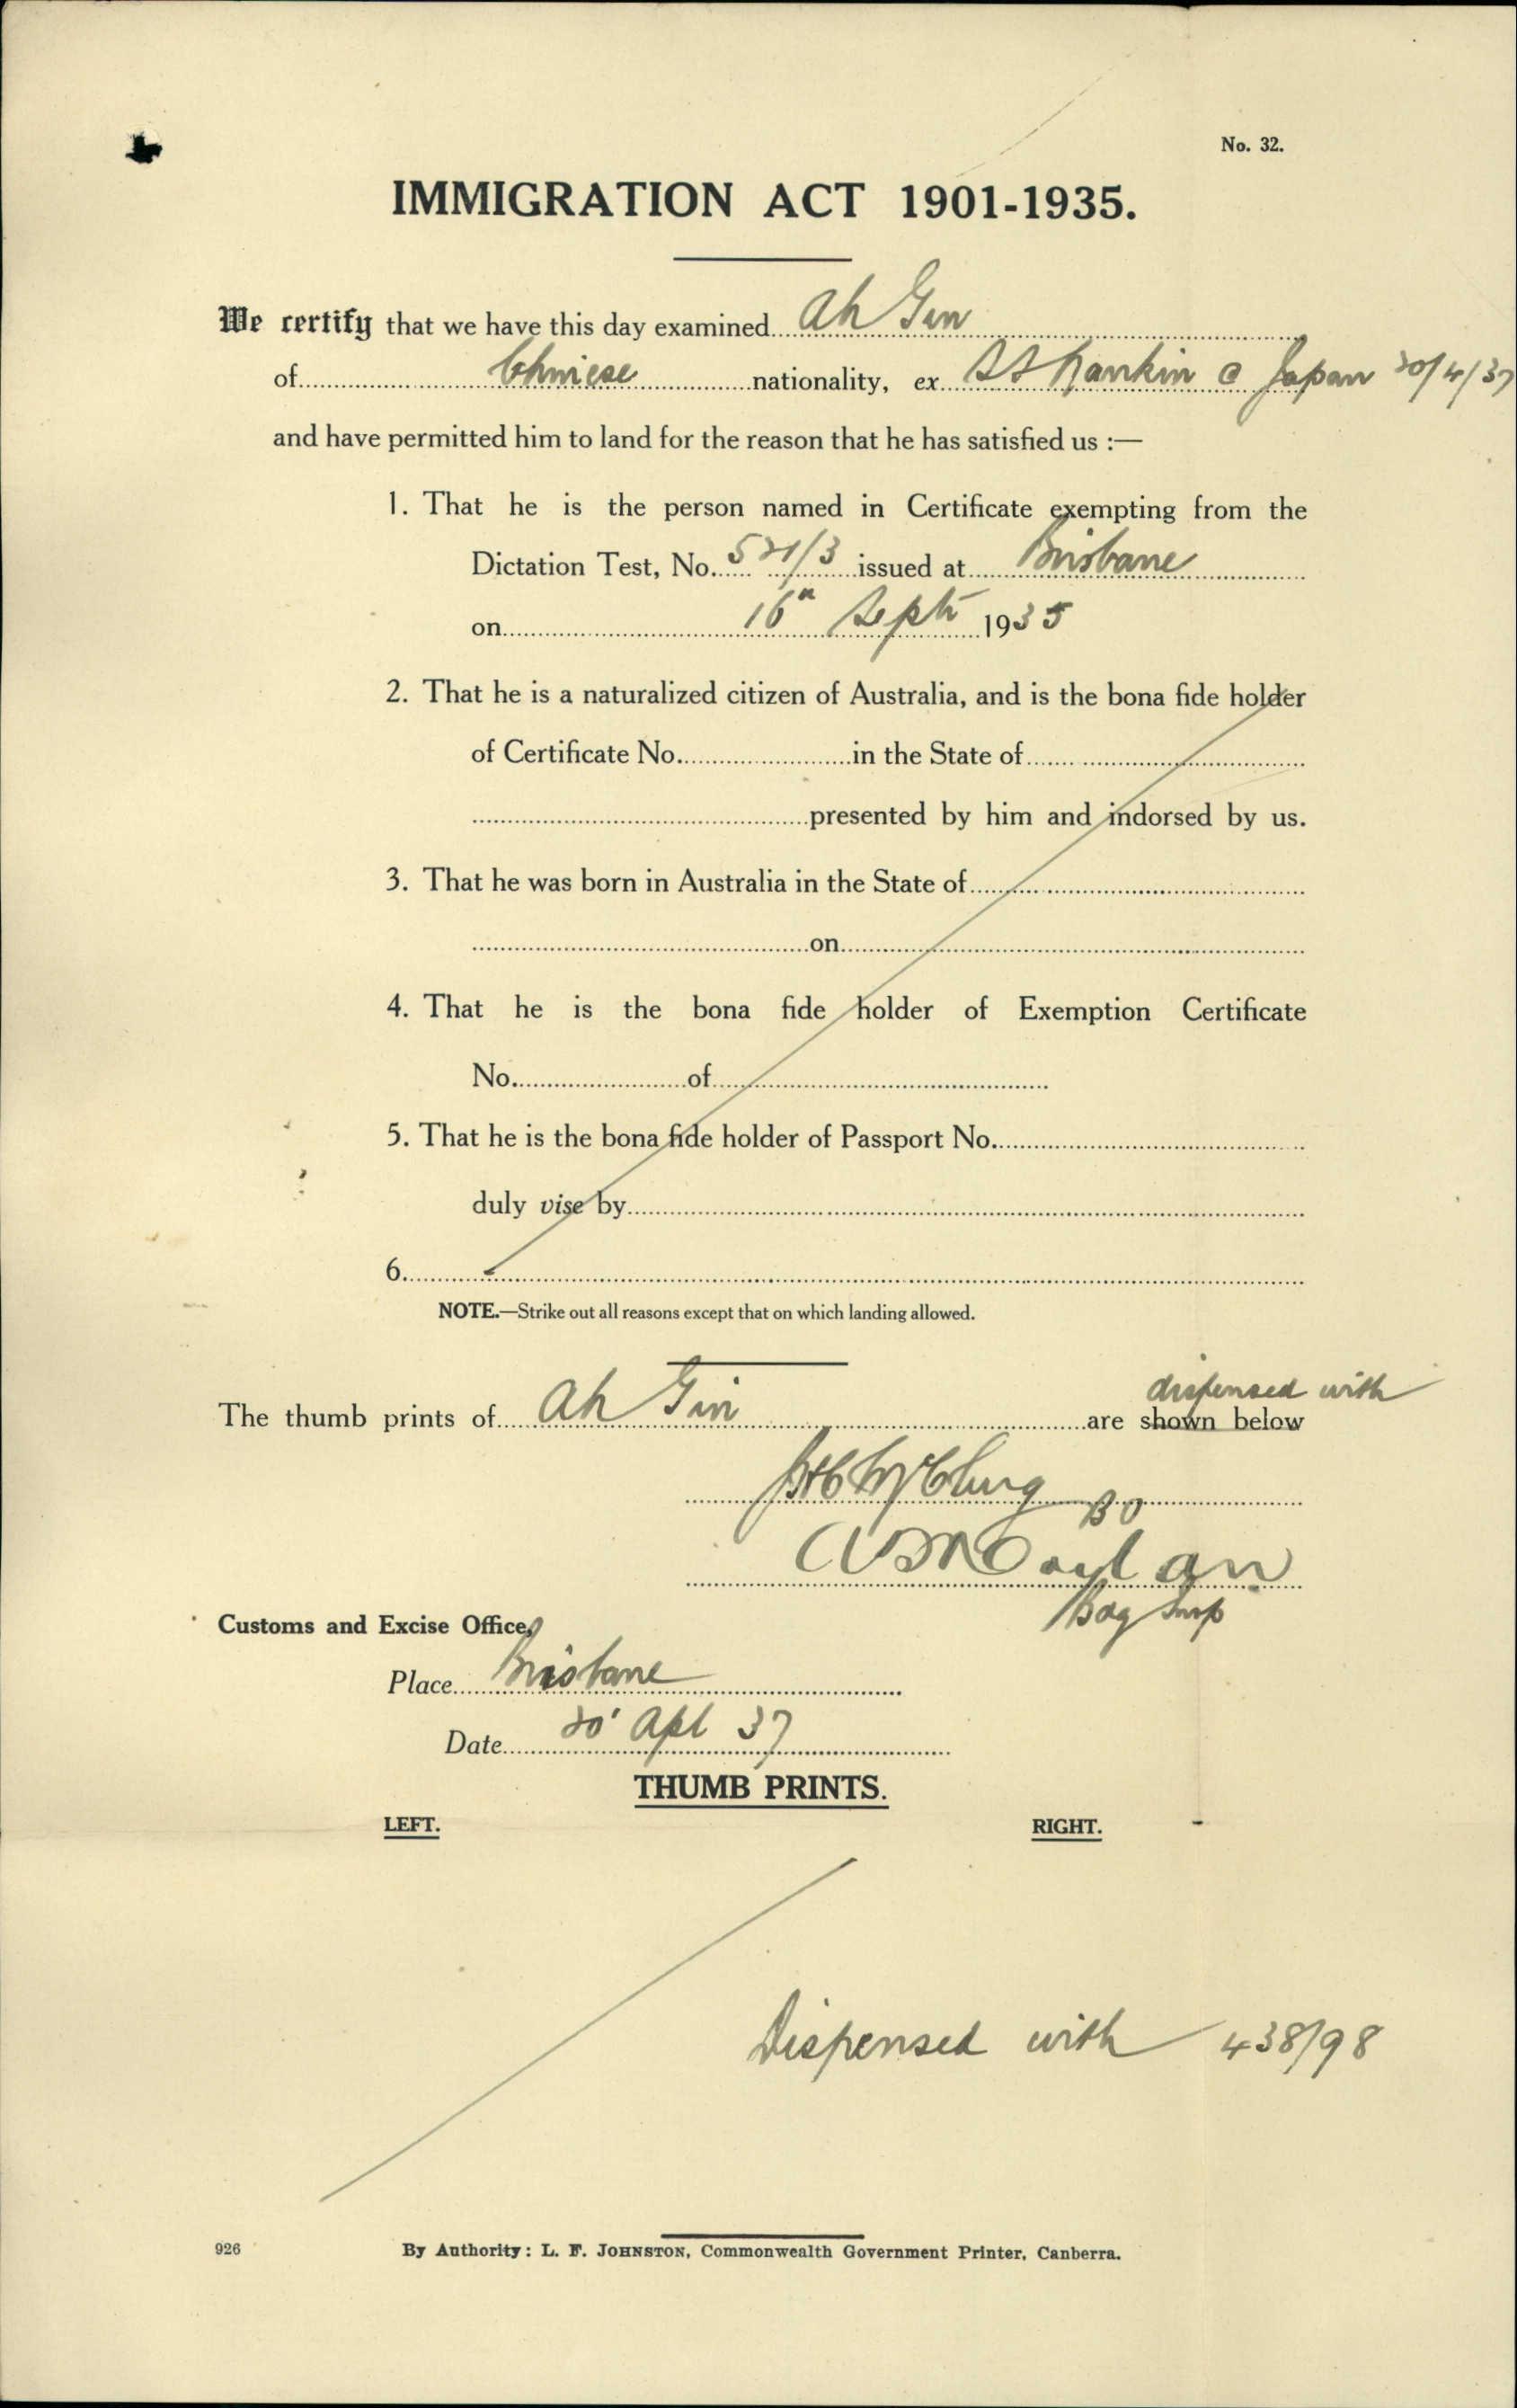 No. 32.
IMMIGRATION ACT 1901-1935.
We certify that we have this day examined Ah Gin
of Chinese nationality, ex SS Nankin @ Japan 30/4/37
and have permitted him to land for the reason that he has satisfied us :—
1. That he is the person named in Certificate exempting from the
Dictation Test, No. 521/3 issued at Brisbane
on 16th Sept 1935
2. That he is a naturalized citizen of Australia, and is the bona fide holder
of Certificate No. in the State of
presented by him and indorsed by us.
3. That he was born in Australia in the State of
on
4. That he is the bona fide holder of Exemption Certificate
No. of
5. That he is the bona fide holder of Passport No.
duly vise by
6.
NOTE.—Strike out all reasons except that on which landing allowed.
dispensed with
The thumb prints of Ah Gin are shown below
BO
Bag Insp
Customs and Excise Office,
Place Brisbane
Date 30' Apl 37
THUMB PRINTS.
LEFT. RIGHT.
Dispensed with 438/98
926 By Authority: L. F. JOHNSTON, Commonwealth Government Printer, Canberra.